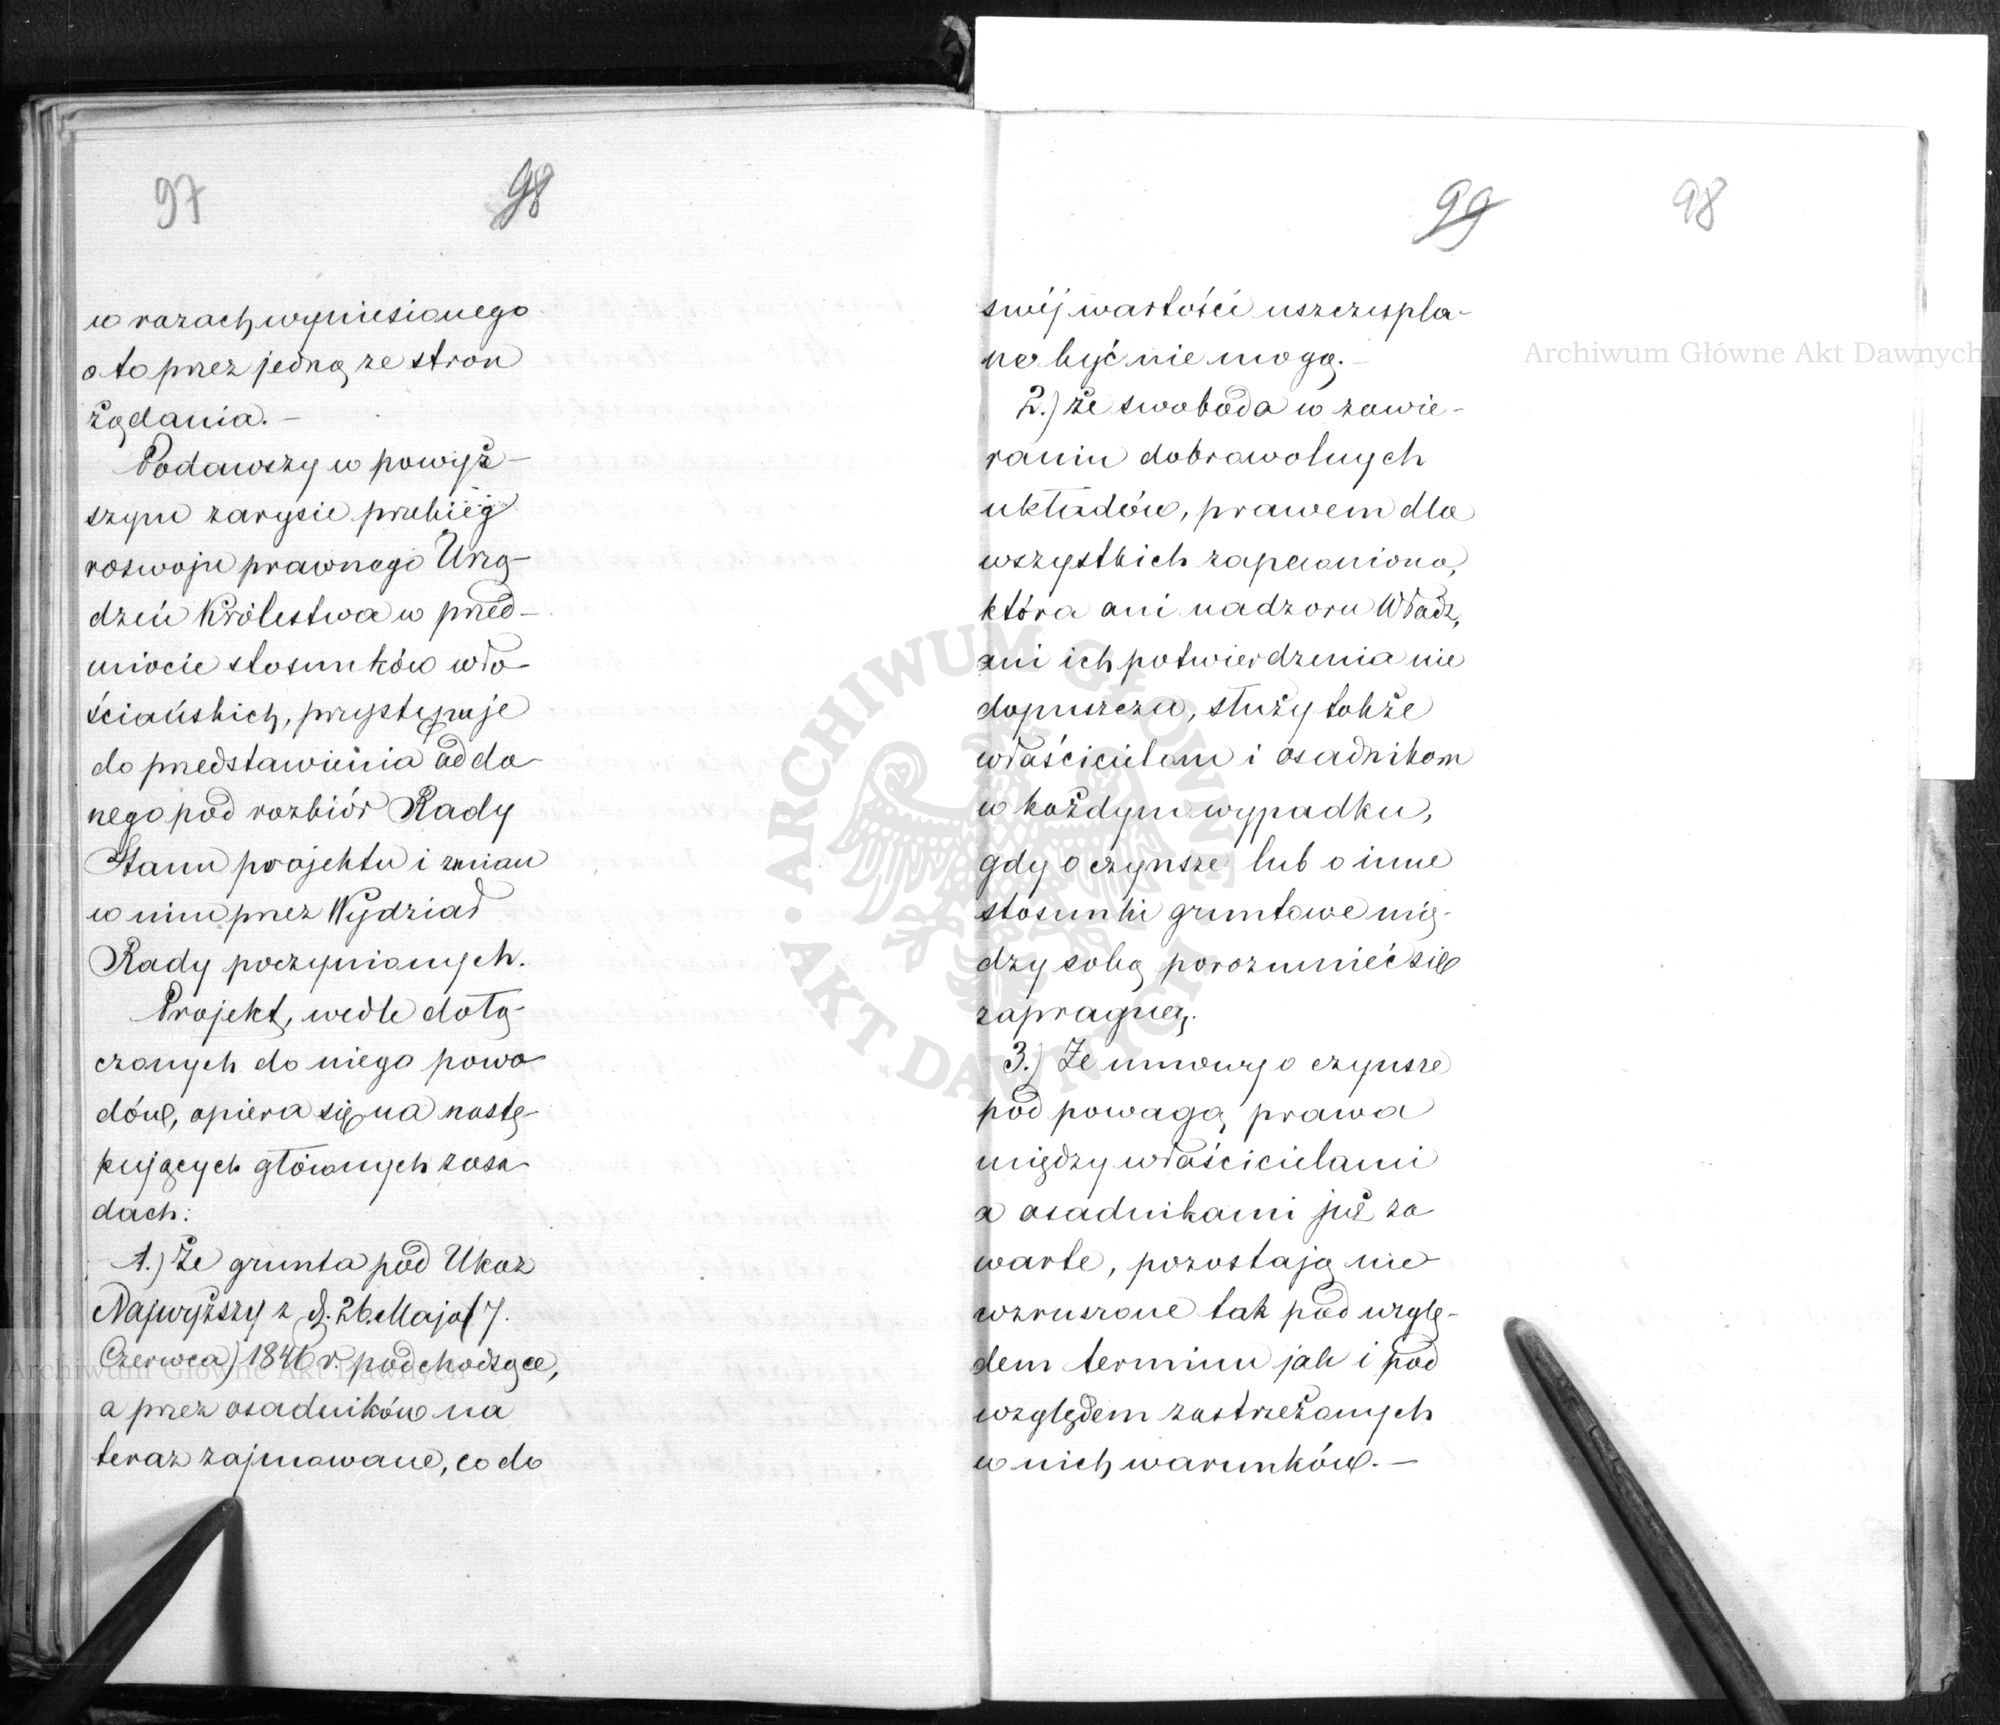 97 98
w razach wyniesionego
o to przez jedną ze stron
żądania. –
Podawszy w powyż-
szym zarysie przebieg
rozwoju prawnego Urzą-
dzeń Królestwa w przed-
miocie stosunków wło-
ściańskich, przystępuje
do przedstawienia odda-
nego pod rozbiór Rady
Stanu projektu i zmian
w nim przez Wydział
Rady poczynionych.
Projekt, wedle dołą-
czonych do niego powo-
dów, opiera się na nastę-
pujących głównych zasa-
dach:
1.) Że grunta pod Ukaz
Najwyższy z d. 26. Maja/7.
Czerwca) 1846 r. podchodzące,
a przez osadników na
teraz zajmowane, co do
99 98
swéj wartości uszczupla-
ne być nie mogą. –
2.) że swoboda w zawie-
raniu dobrowolnych
układów, prawem dla
wszystkich zapewniona,
która ani nadzoru Władz,
ani ich potwierdzenia nie
dopuszcza, służy także
właścicielom i osadnikom
w każdym wypadku,
gdy o czynsze lub o inne
stosunki gruntowe mię-
dzy sobą porozumieć się
zapragną.
3.) Że umowy o czynsze
pod powagą prawa
między właścicielami
a osadnikami już za
warte, pozostają nie
wzruszone tak pod wzglę-
dem terminu jak i pod
względem zastrzeżonych
w nich warunków. –
Archiwum Główne Akt Dawnych
Archiwum Główne Akt Dawnych
ARCHIWUM GŁÓWNE AKT DAWNYCH